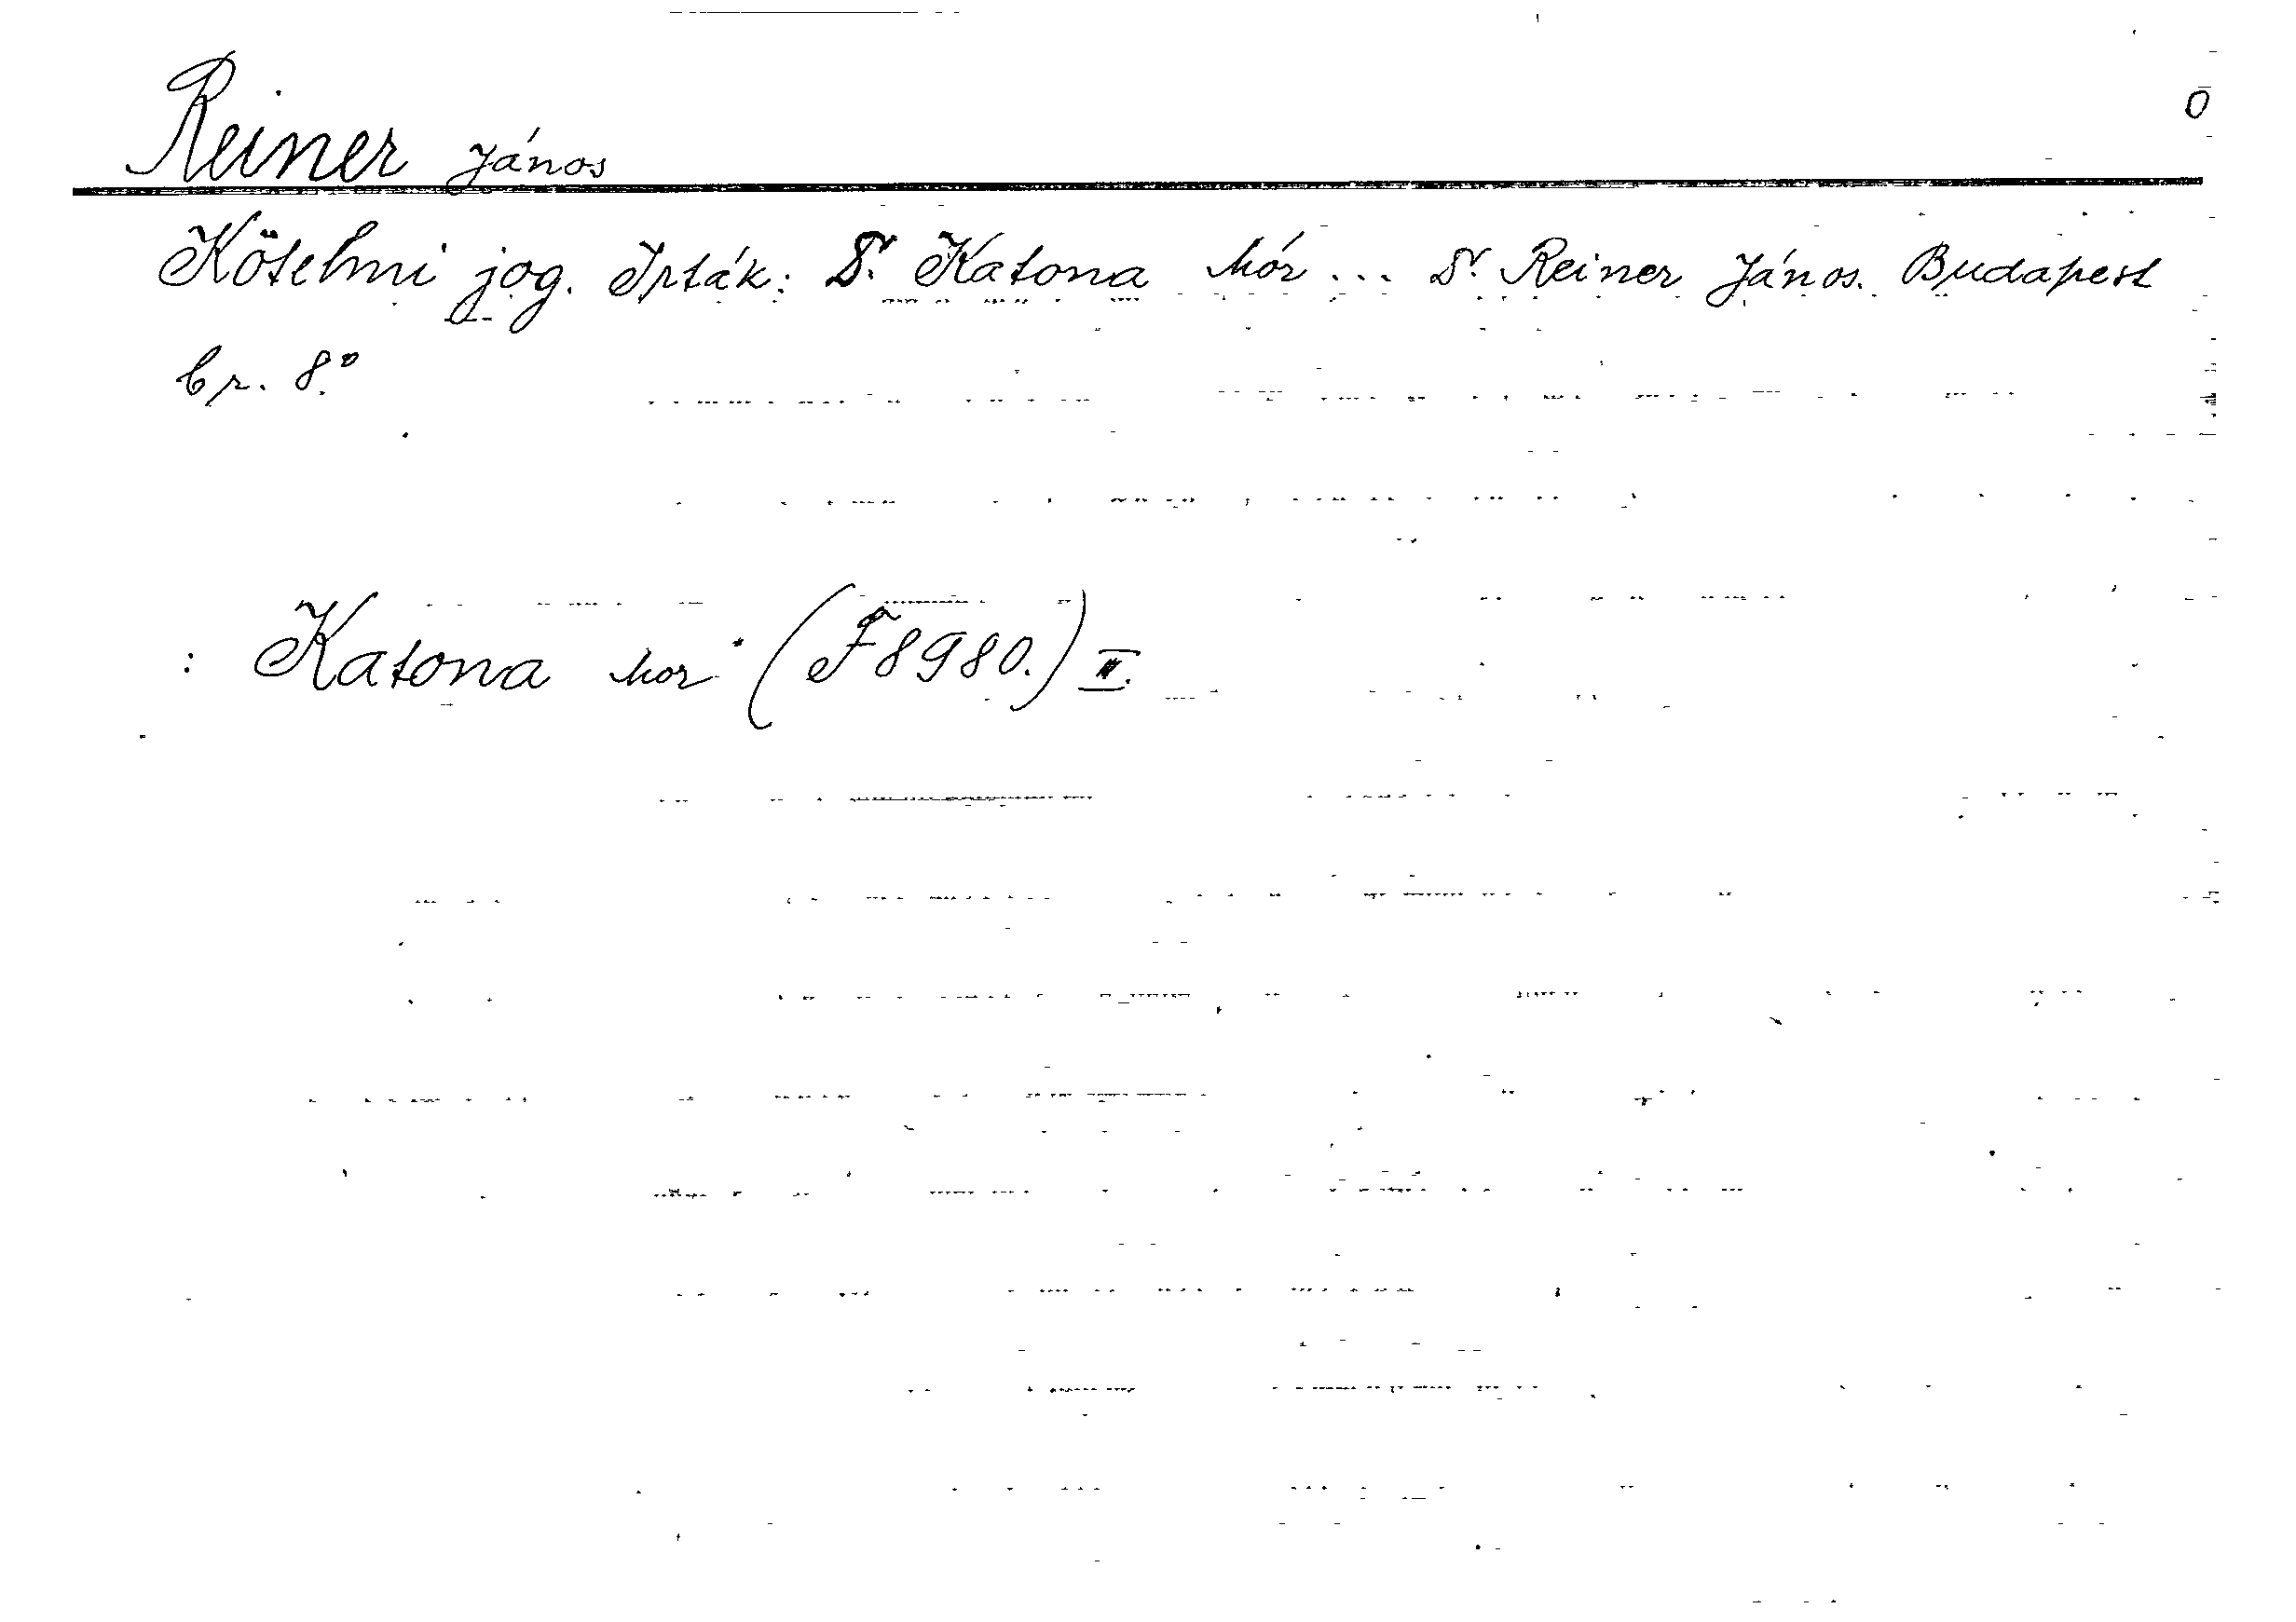 Reiner János
0
Kötelmi jog. Irták: Dr. Katona Mór ... Dr. Reiner János. Budapest
br. 8.°
: Katona Mor (F8980.) II.